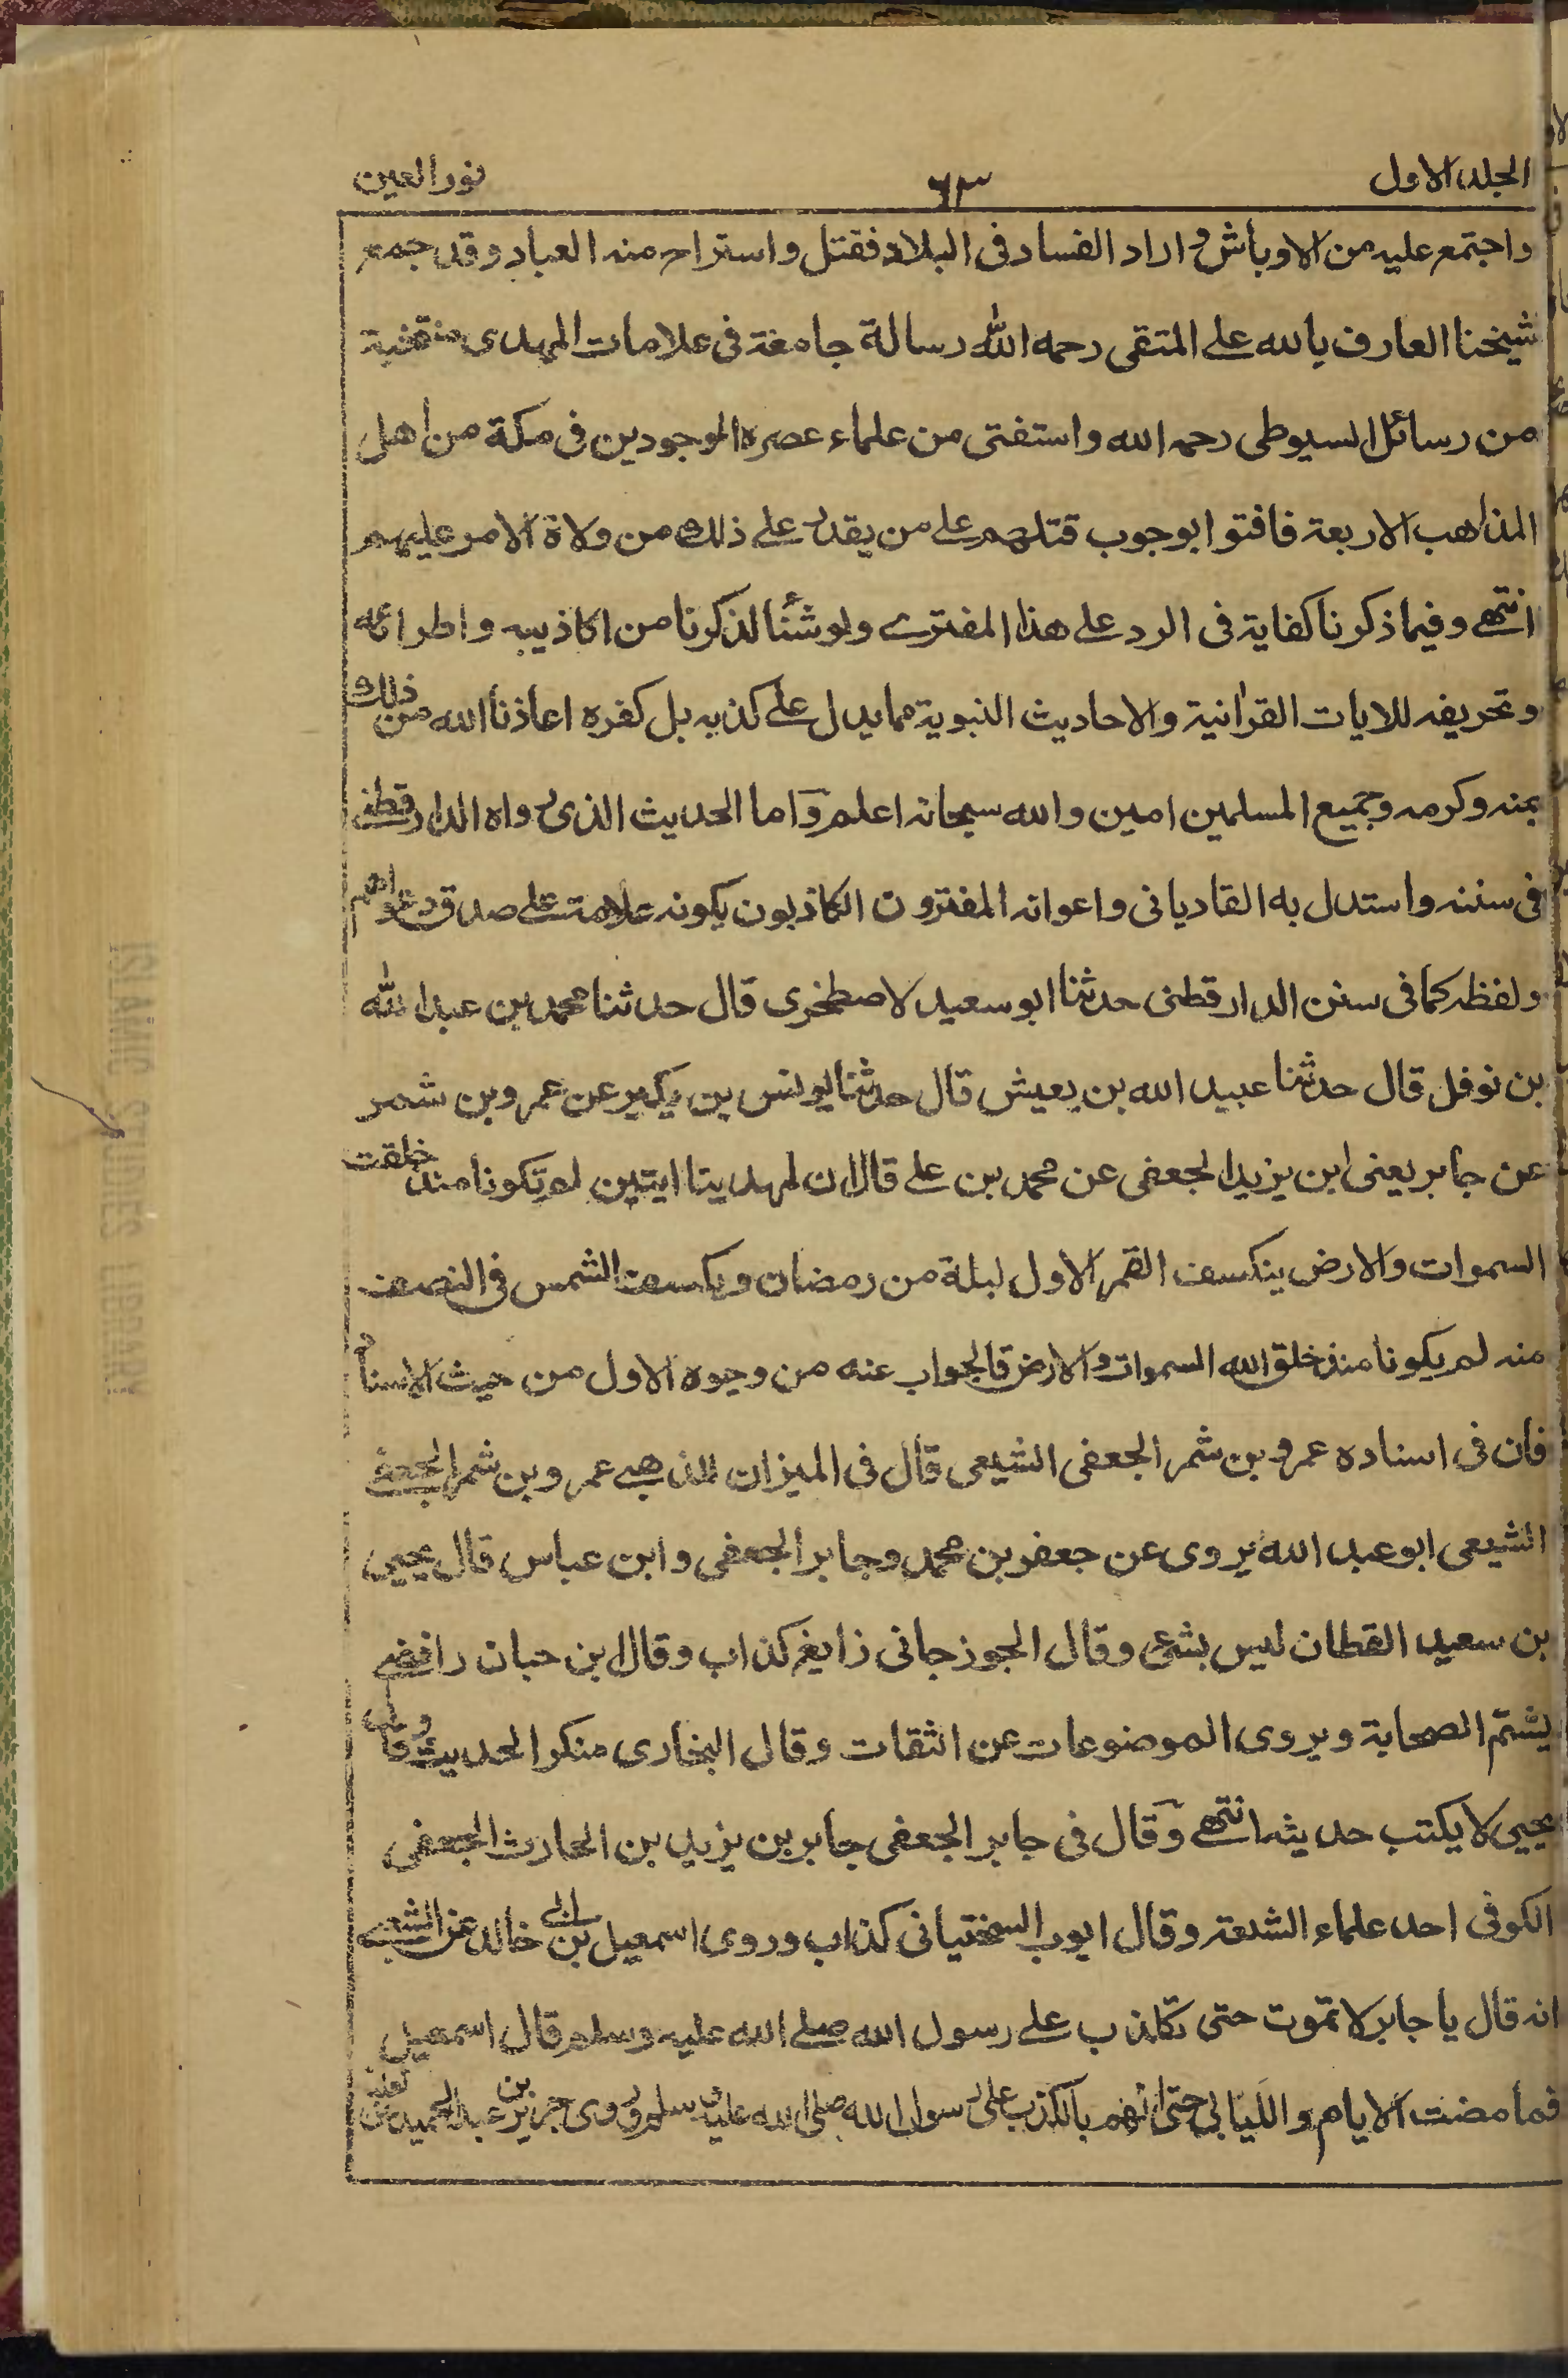 الجلد الاول ٦٣ نور العين
واجتمع عليه من الاوباش و اراد الفساد فى البلاد فقتل واستراح منه العباد وقد جمع
شيخنا العارف بالله على المتقى رحمه الله رسالة جامعة فى علامات المهدى منتخبة
من رسائل السيوطى رحمه الله واستفتى من علماء عصره الموجودين فى مكة من اهل
المذاهب الاربعة فافتوا بوجوب قتلهم على من يقدر على ذلك من ولاة الامر عليهم
انتهى وفيما ذكرنا كفاية فى الرد على هذا المفترے ولو شئنا لذكرنا من اكاذيبه واطرائه
وتحريفه للايات القرانية والاحاديث النبوية مما يدل على كذبه بل كفره اعاذنا الله من ذلك
بمنه وكرمه وجميع المسلمين امين والله سبحانه اعلم واما الحديث الذى رواه الدارقطنے
فى سننه واستدل به القاديانى واعوانه المفترون الكاذبون بكونه علامة على صدق دعواهم
ولفظه كما فى سنن الدارقطنى حدثنا ابو سعيد الاصطخرى قال حدثنا محمد بن عبد الله
بن نوفل قال حدثنا عبيد الله بن يعيش قال حدثنا يونس بن بكير عن عمرو بن شمر
عن جابر يعنى ابن يزيد الجعفى عن محمد بن على قال ان لمهدينا ايتين لم تكونا منذ خلقت
السموات والارض ينكسف القمر الاول ليلة من رمضان وتكسف الشمس فى النصف
منه لم يكونا منذ خلق الله السموات والارض فالجواب عنه من وجوه الاول من حيث الاسناد
فان فى اسناده عمرو بن شمر الجعفى الشيعى قال فى الميزان للذهبے عمرو بن شمر الجعفے
الشيعى ابو عبد الله يروى عن جعفر بن محمد وجابر الجعفى وابن عباس قال يحيى
بن سعيد القطان ليس بشئ وقال الجوزجانى زايغ كذاب وقال ابن حبان رافضے
يشتم الصحابة ويروى الموضوعات عن الثقات وقال البخارى منكر الحديث وقال
يحيى لا يكتب حديثه انتهے وقال فى جابر الجعفى جابر بن يزيد بن الحارث الجعفى
الكوفى احد علماء الشيعة وقال ايوب السختيانى كذاب وروى اسمعيل بن ابى خالد عن الشعبے
انه قال يا جابر لا تموت حتى تكذب على رسول الله صلے الله عليه وسلم قال اسمعيل
فما مضت الايام والليالى حتى اتهم بالكذب على رسول الله صلى الله عليه وسلم وروى جرير بن عبد الحميد عن
ISLAMIC STUDIES LIBRARY